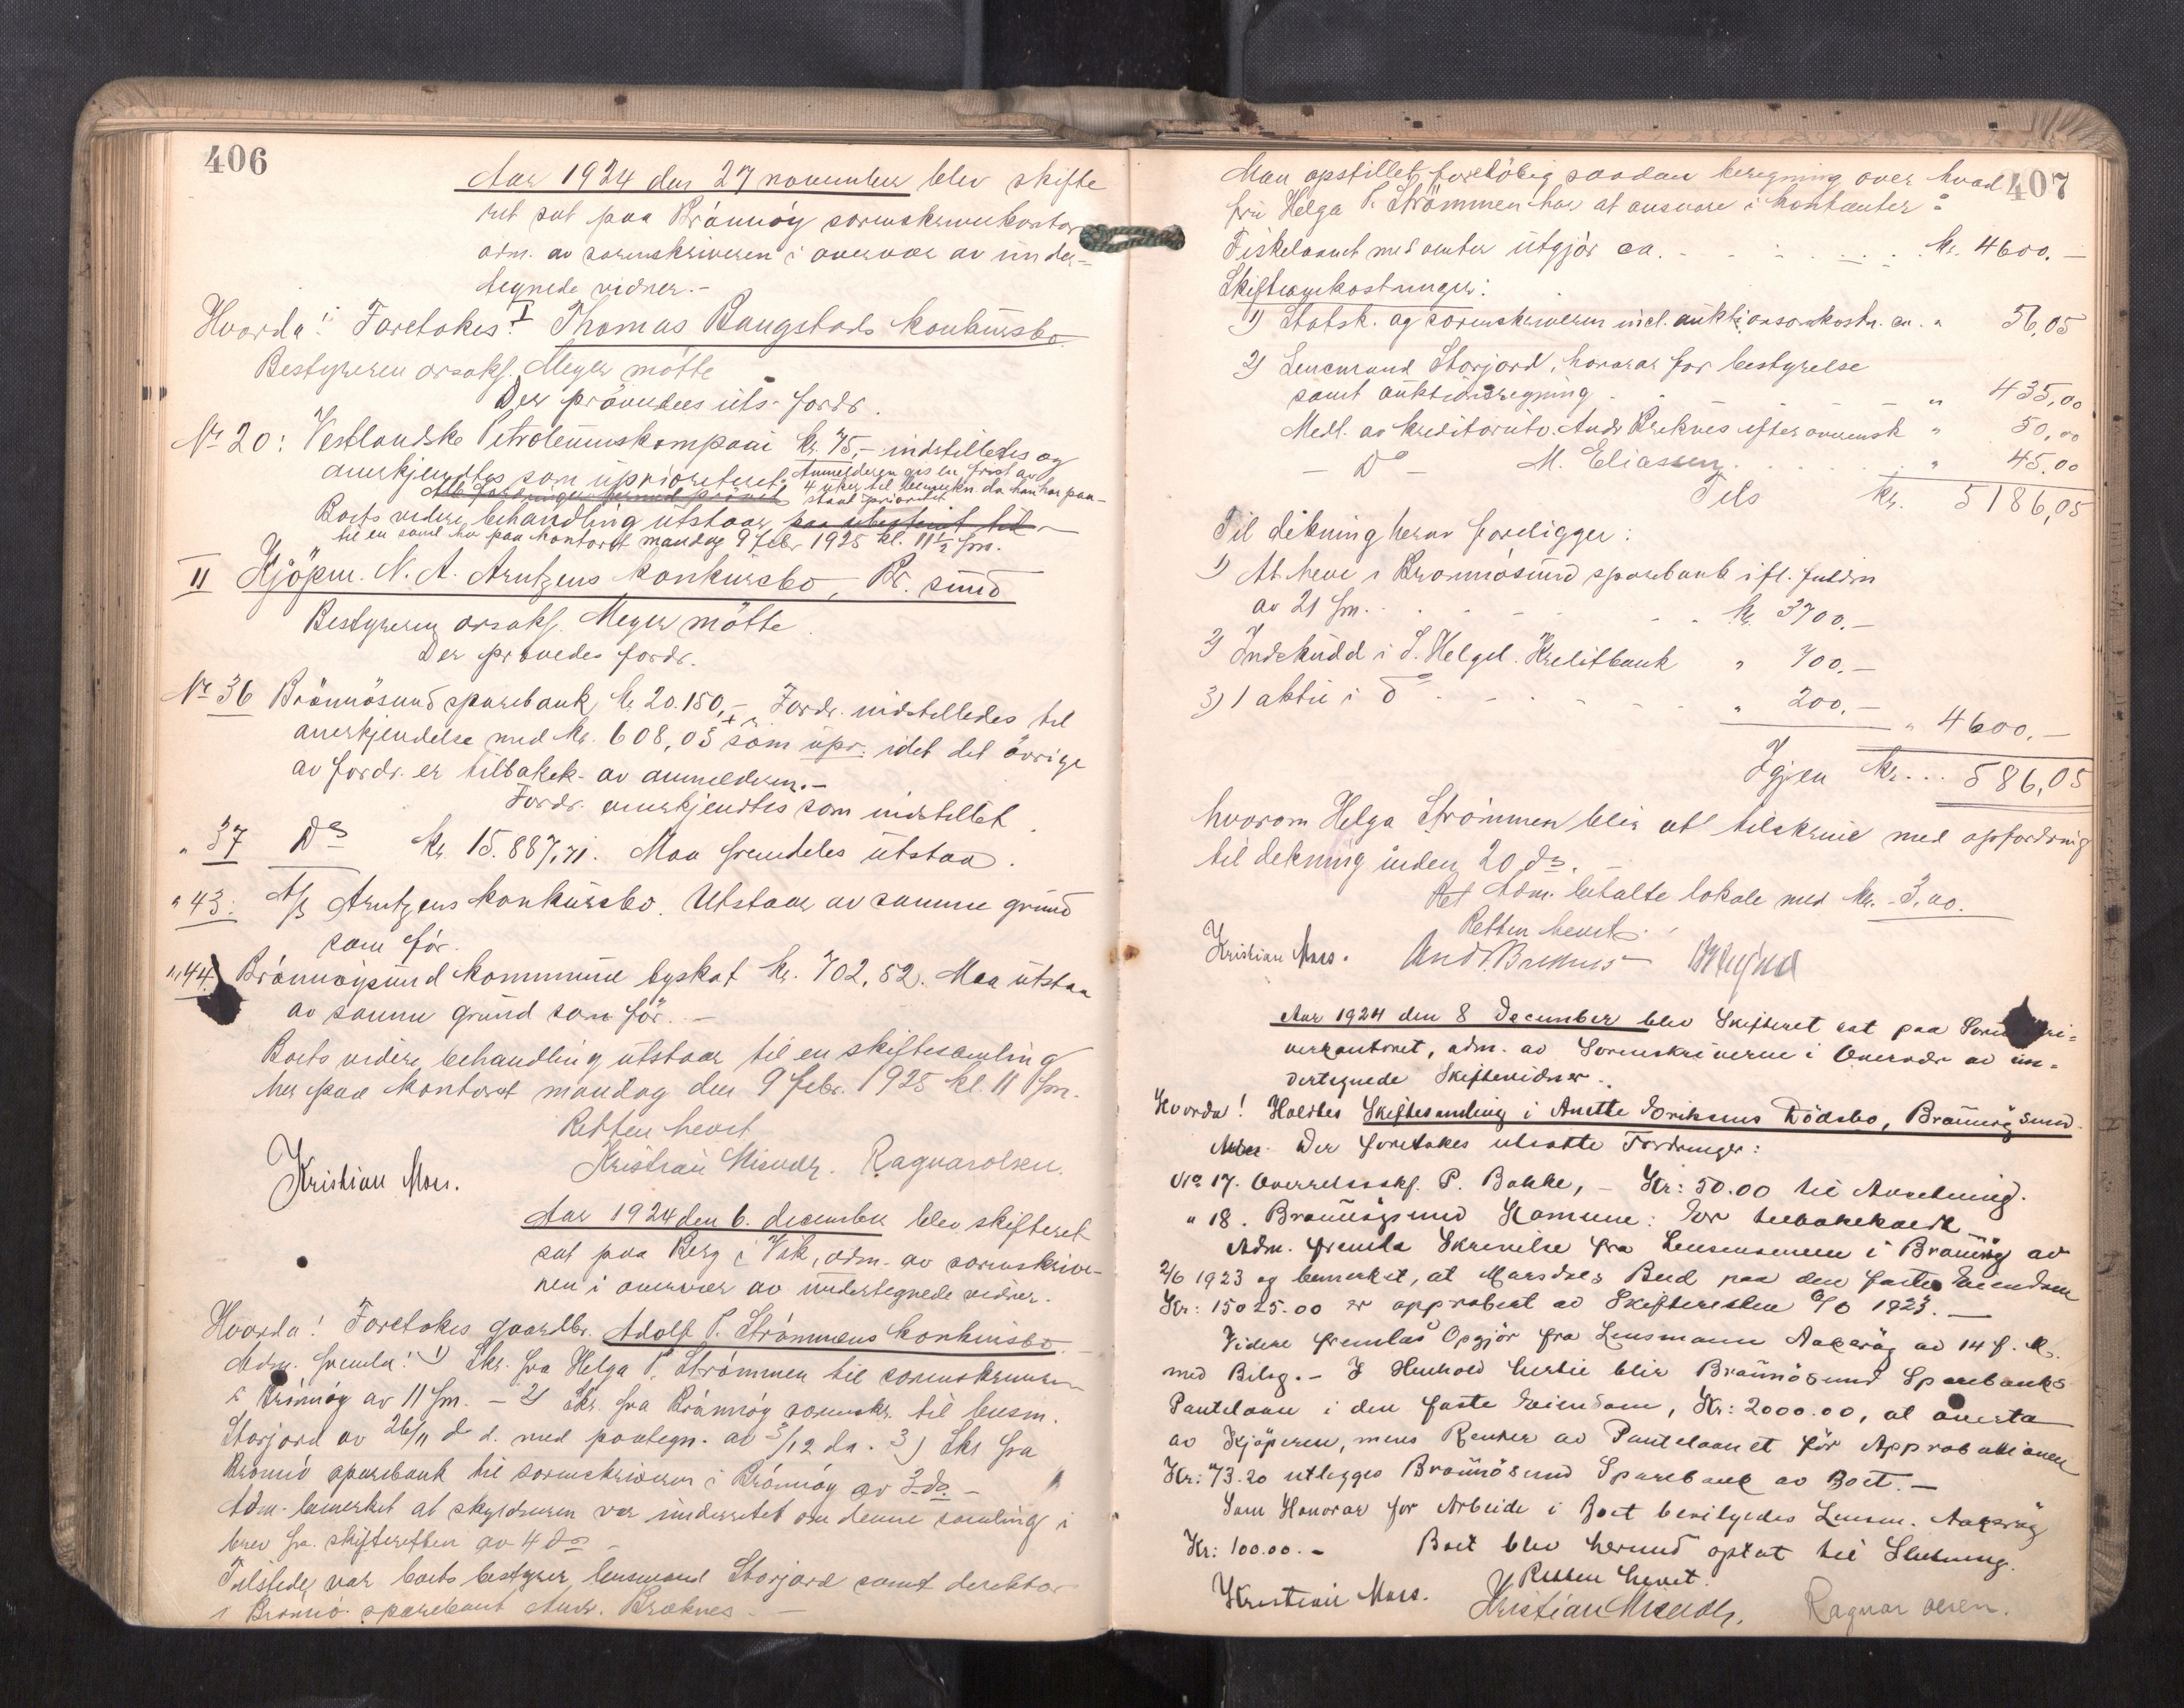 406
Aar 1924 den 27 november blev skifte
ret sat paa Brönnöy sorenskriverkontor
adm. av sorenskriveren i overvær av under-
tegnede vidner.-
Hvorda! Foretokes: I Thomas Baugstads konkursbo.
Bestyreren orsakf. Meyer mötte
Der prövedes uts. fordr.
Nr 20: Vestlandske Petroleumskompani kr. 75,- indstilledes og
anerkjendtes som uprioritert. Anmelderen gis en frist av
4 uker til da han har paa-
Alle fordringer hermed prövet staat prioritet
Boets videre behandling utstaar paa ubestemt tid
til en saml. her paa kontoret mandag 9 febr 1925 kl. 11 1/2 fm.
II Kjöpm. N. A. Arntzens konkursbo, Br. sund
Bestyreren orsakf. Meyer mötte.
Der prövedes fordr.
Nr 36 Brönnösund sparebank kr 20.150,- Fordr. indstilledes til
anerkjendelse med kr. 608,05 som upr. idet det övrige
av fordr. er tilbakek. av anmelderen.-
Fordr. anerkjendtes som indstillet.
" 37 Do kr 15.887,71. Maa fremdeles utstaa.
" 43: A/S Arntzens konkursbo. Utstaar av samme grund
som för.
" 44. Brönnöysund kommune byskat kr. 702,52. Maa utstaa
av samme grund som för.-
Boets videre behandling utstaar til en skiftesamling
her paa kontoret mandag den 9 febr. 1925 kl. 11 fm.
Retten hevet
Kristian Moes. Kristian Ragnar Olsen.
Aar 1924 den 6. december blev skifteret
sat paa Berg i Vik, adm. av sorenskrive-
ren i overvær av undertegnede vidner.
Hvorda! Foretokes gaardbr. Adolf P. Strömmens konkursbo.
Adm. fremla: 1) Skr. fra Helga P. Strömmen til sorenskriveren
i Brönnöy av 11 fm. - 2) Skr. fra Brönnöy sorenskr. til lensm.
Storjord av 26/11 d. d. med paategn. av 3/12 ds. 3) Skr fra
Brönnö sparebank til sorenskriveren i Brönnöy av 3 ds. -
Adm. bemerket at skyldneren var underrettet om denne samling i
brev fra skifteretten av 4 ds -
Tilstede var boets bestyrer lensmand Storjord samt direktör
i Brönnö. sparebank Andr. Bræknes. -
407
Man opstillet forelöbig saadan beregning over hvad
fru Helga P. Strömmen har at ansvare i kontanter:
Fiskelaanet med renter utgjör ca. kr. 4600.-
Skifteomkostninger:
1) Statsk. og sorenskriveren incl. auktionsomkostn. ca. " 56,05
2) Lensmand Storjord, honorar for bestyrelse
samt auktionsregning " 435,00
Medl. av kreditorutv. Andr Bræknes efter overensk " 50,00
- Do - M. Eliassen " 45.00
Tils kr. 5186,05
Til dekning herav foreligger:
1) At heve i Brönnösund sparebank ifl. fuldm
av 21 fm. kr. 3700.-
2) Indskudd i S. Helgel. Kreditbank " 700.-
3) 1 aktie i do " 200.- " 4600.-
Igjen kr... 586,05
hvorom Helga Strömmen blir at tilskrive med opfordring
til dekning inden 20 ds. -
Adm. betalte lokale med kr. 3,00.
Retten hevet.
Kristian Moes. Andr. Bræknes
Aar 1924 den 8 December blev Skifteret sat paa Sorenskri-
verkontoret, adm. av Sorenskriveren i Overvær av un-
dertegnede Skiftevidner.
Hvorda! Holdtes Skiftesamling i Anette Eriksens Dödsbo, Brönnöysund.
Der foretokes utsatte Fordringer:
No 17. Overretssakf. P. Bakke, - Kr: 50.00 til Avsetning.
" 18. Brönnöysund Komune: Er tilbakekaldt
Adm. fremla Skrivelse fra Lensmannen i Brönnöy av
2/6 1923 og bemerket, at Marsdals Bud paa den faste Eiendom
Kr: 15025.00 er approbert av Skifteretten 6/6 1923. -
Videre fremlas Opgjör fra Lensmann Aakeröy av 14 f. M.
med Bilag. - I Henhold hertil blir Brönnösund Sparebanks
Pantelaan i den faste Eiendom, Kr: 2000.00, at overta
av Kjöperen, mens Renter av Pantelaanet för Approbationen
Kr: 73.20 utlegges Brönnösund Sparebank av Boet. -
Som Honorar for Arbeide i Boet bevilgedes Lensm. Aakeröy
Kr: 100.00. - Boet blev hermed optat til Slutning.
Retten hevet.
Kristian Moes. Kristian Ragnar Olsen.